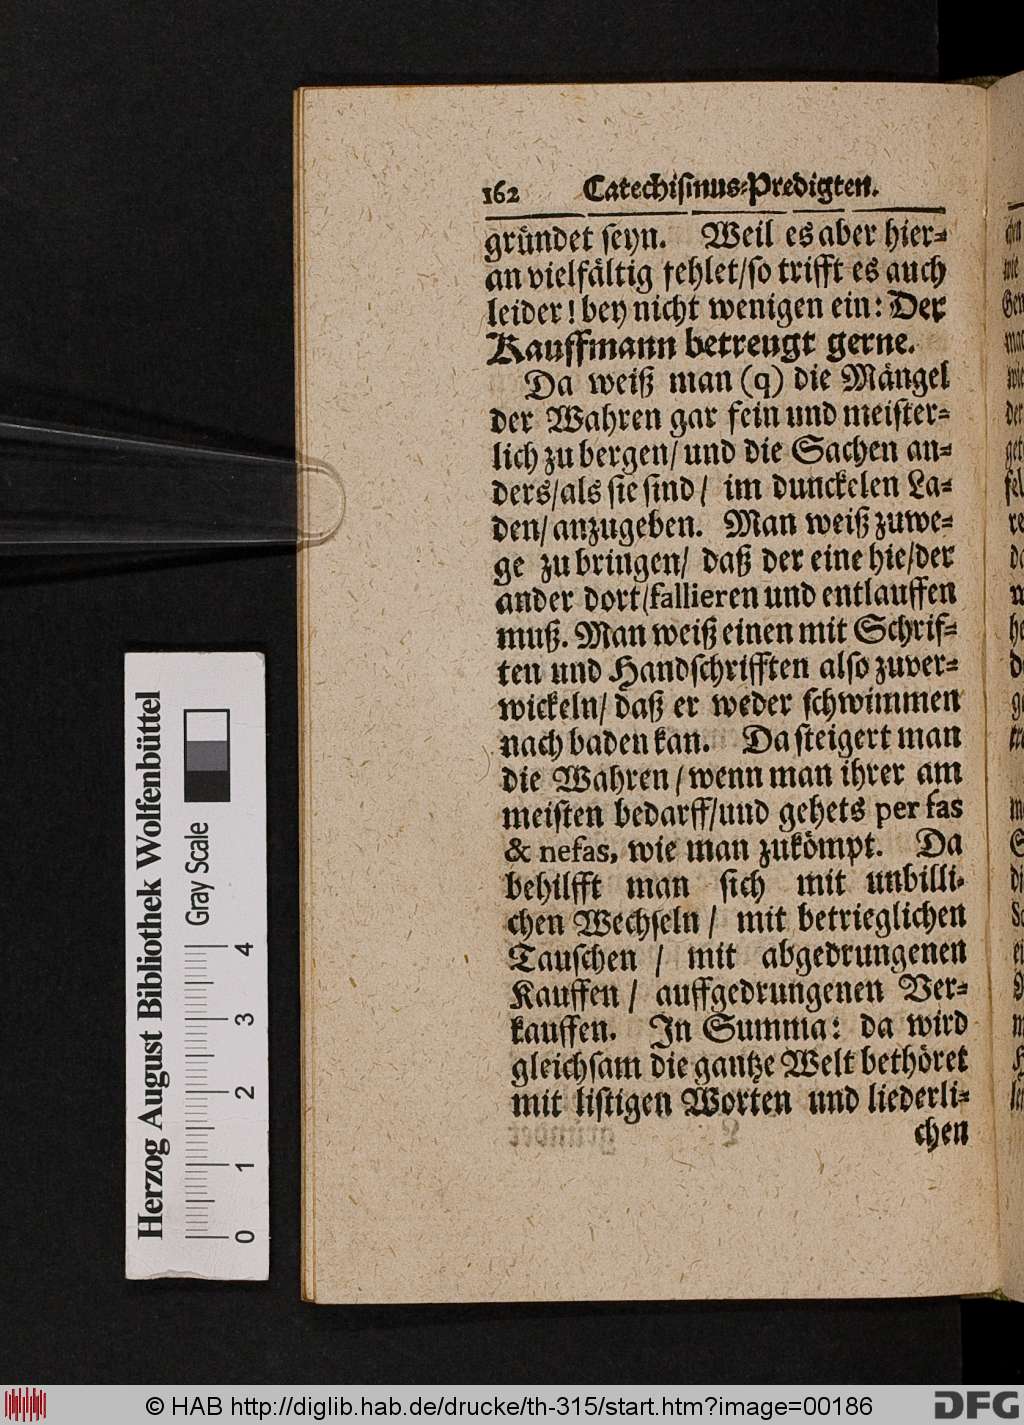 162 Catechismus-Predigten.
gründet seyn. Weil es aber hier-
an vielfältig fehlet/so trifft es auch
leider! bey nicht wenigen ein: Der
Kauffmann betreugt gerne.
Da weiß man (q) die Mängel
der Wahren gar fein und meister-
lich zu bergen/ und die Sachen an-
ders/als sie sind/ im dunckelen La-
den/ anzugeben. Man weiß zuwe-
ge zu bringen/ daß der eine hie/der
ander dort/fallieren und entlauffen
muß. Man weiß einen mit Schrif-
ten und Handschrifften also zuver-
wickeln/ daß er weder schwimmen
nach baden kan. Da steigert man
die Wahren/wenn man ihrer am
meisten bedarff/und gehets per fas
& nefas, wie man zukömpt. Da
behilfft man sich mit unbilli-
chen Wechseln/ mit betrieglichen
Tauschen/ mit abgedrungenen
Kauffen/ auffgedrungenen Ver-
kauffen. In Summa: da wird
gleichsam die gantze Welt bethöret
mit listigen Worten und liederli-
chen
Herzog August Bibliothek Wolfenbüttel
Gray Scale
0 1 2 3 4
© HAB http://diglib.hab.de/drucke/th-315/start.htm?image=00186
DFG